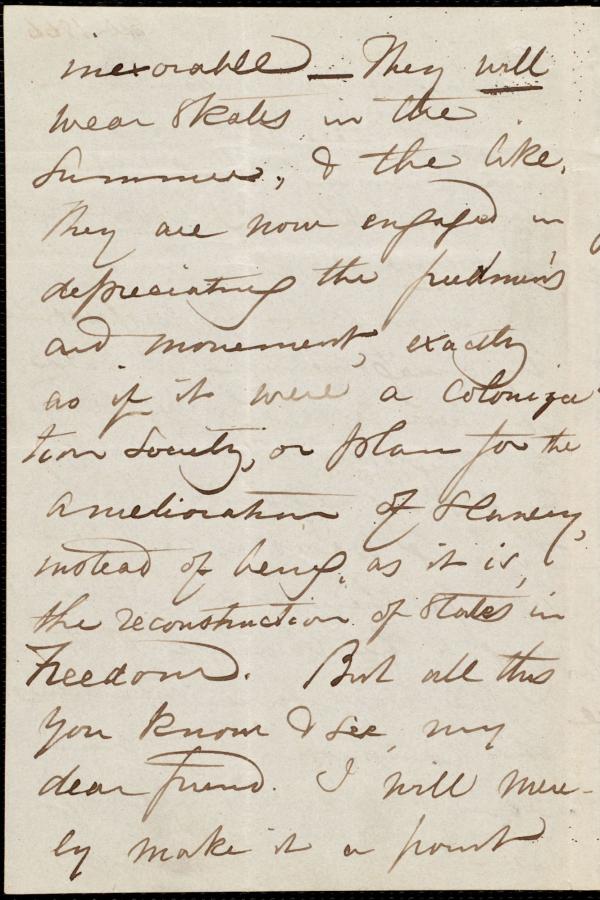 inexorable — They will
wear Skates in the
Summer, & the like.
They are now engaged in
depreciating the freedmen's
aid movement, exactly
as if it were a Coloniza
tion Society, or plan for the
amelioration of Slavery,
instead of being, as it is,
the reconstruction of States in
Freedom. But all this
you know & see, my
dear friend. I will mere-
ly make it a point